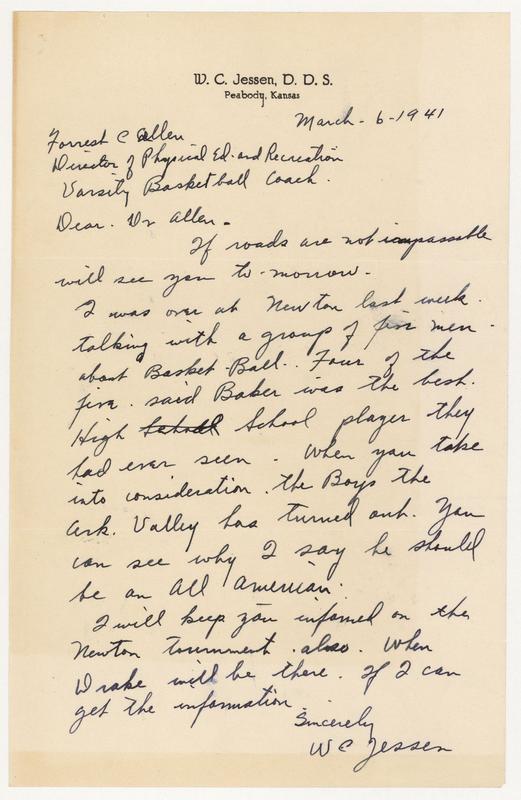 W. C. Jessen, D. D. S.
Peabody, Kansas
March - 6 - 1941
Forrest C Allen
Director of Physical Ed. and Recreation
Varsity Basketball Coach.
Dear. Dr Allen -
If roads are not impassable
will see you to-morrow -
I was over at Newton last week.
talking with a group of five men -
about Basket-Ball.. Four of the
five. said Baker was the best.
High School School player they
had ever seen. When you take
into consideration. the Boys the
Ark. Valley has turned out. You
can see why I say he should
be an All American.
I will keep you informed on the
Newton tournment. also. When
Drake will be there. If I can
get the information.
Sincerely
W C Jessen